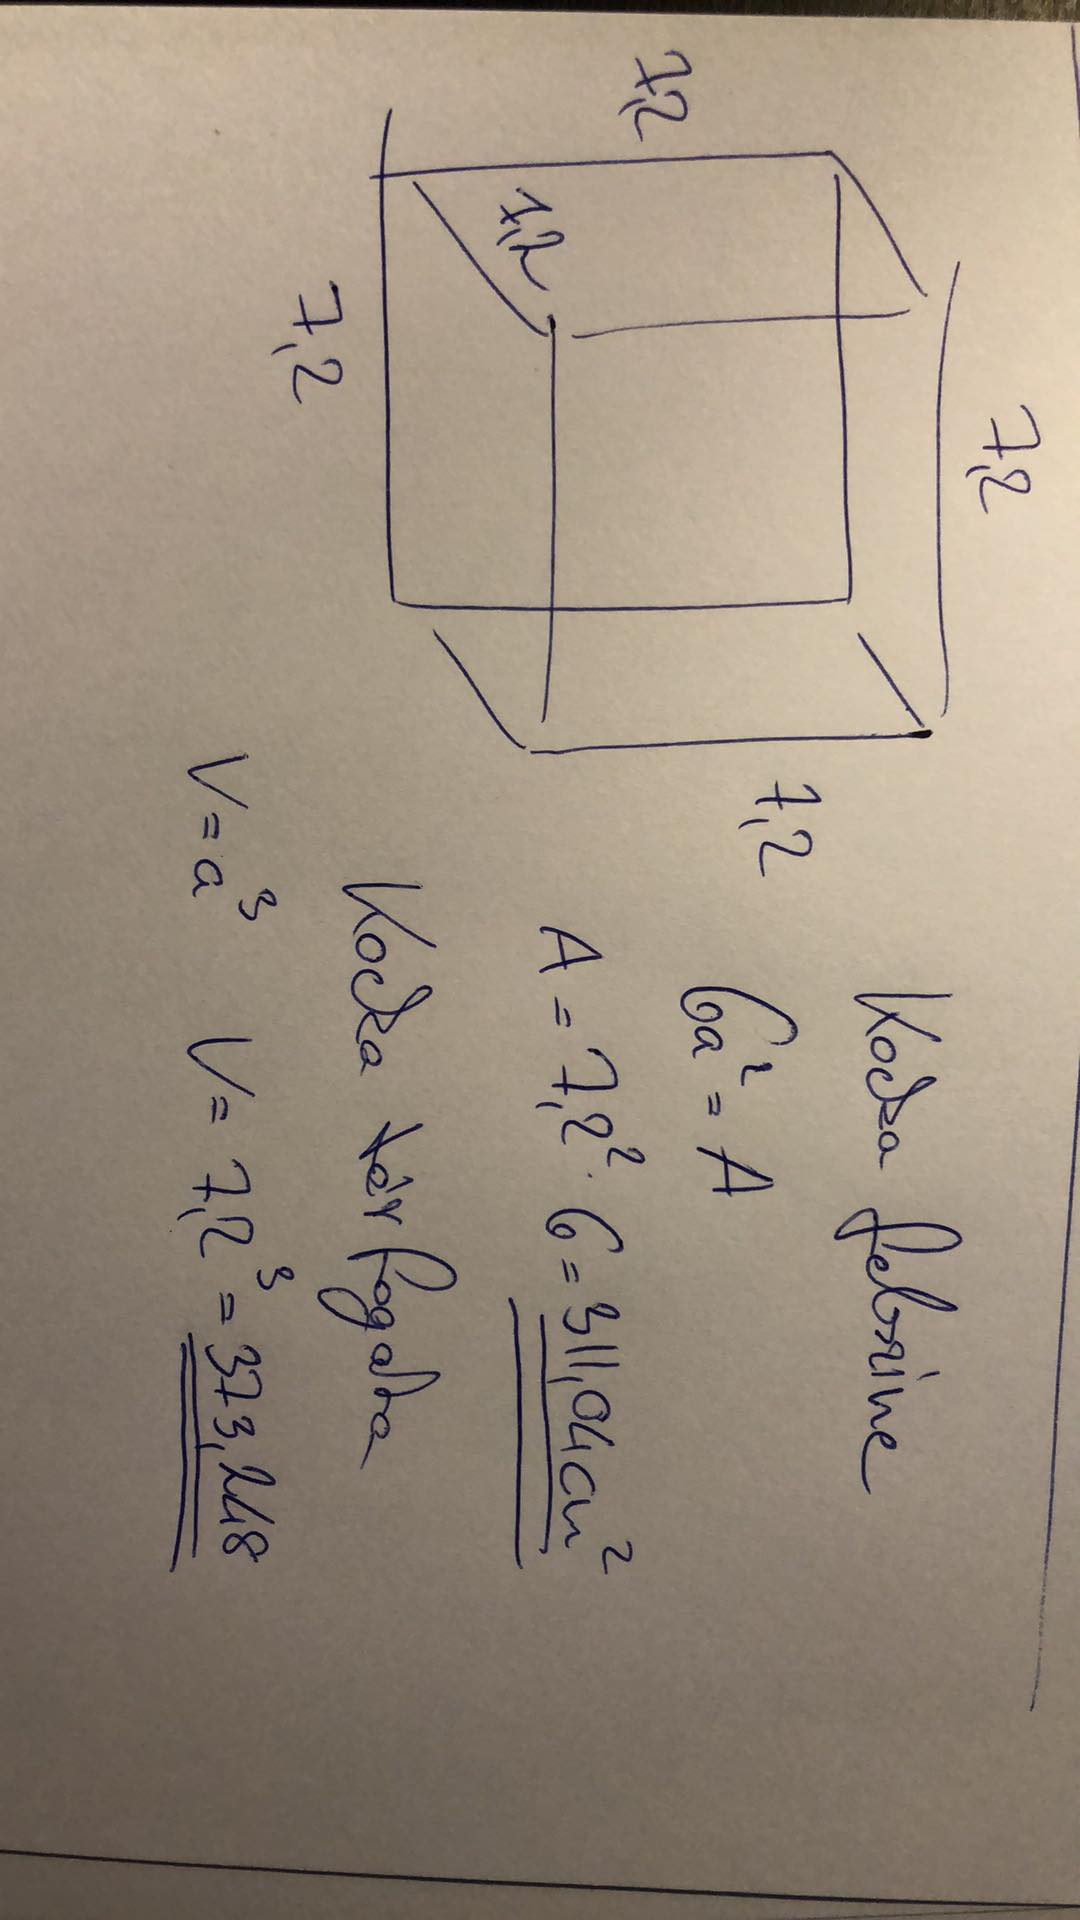 7,2
7,2
7,2
7,2
7,2
Kocka felszíne
6a² = A
A = 7,2² · 6 = 311,04 cm²
Kocka térfogata
V = a³ V = 7,2³ = 373,248